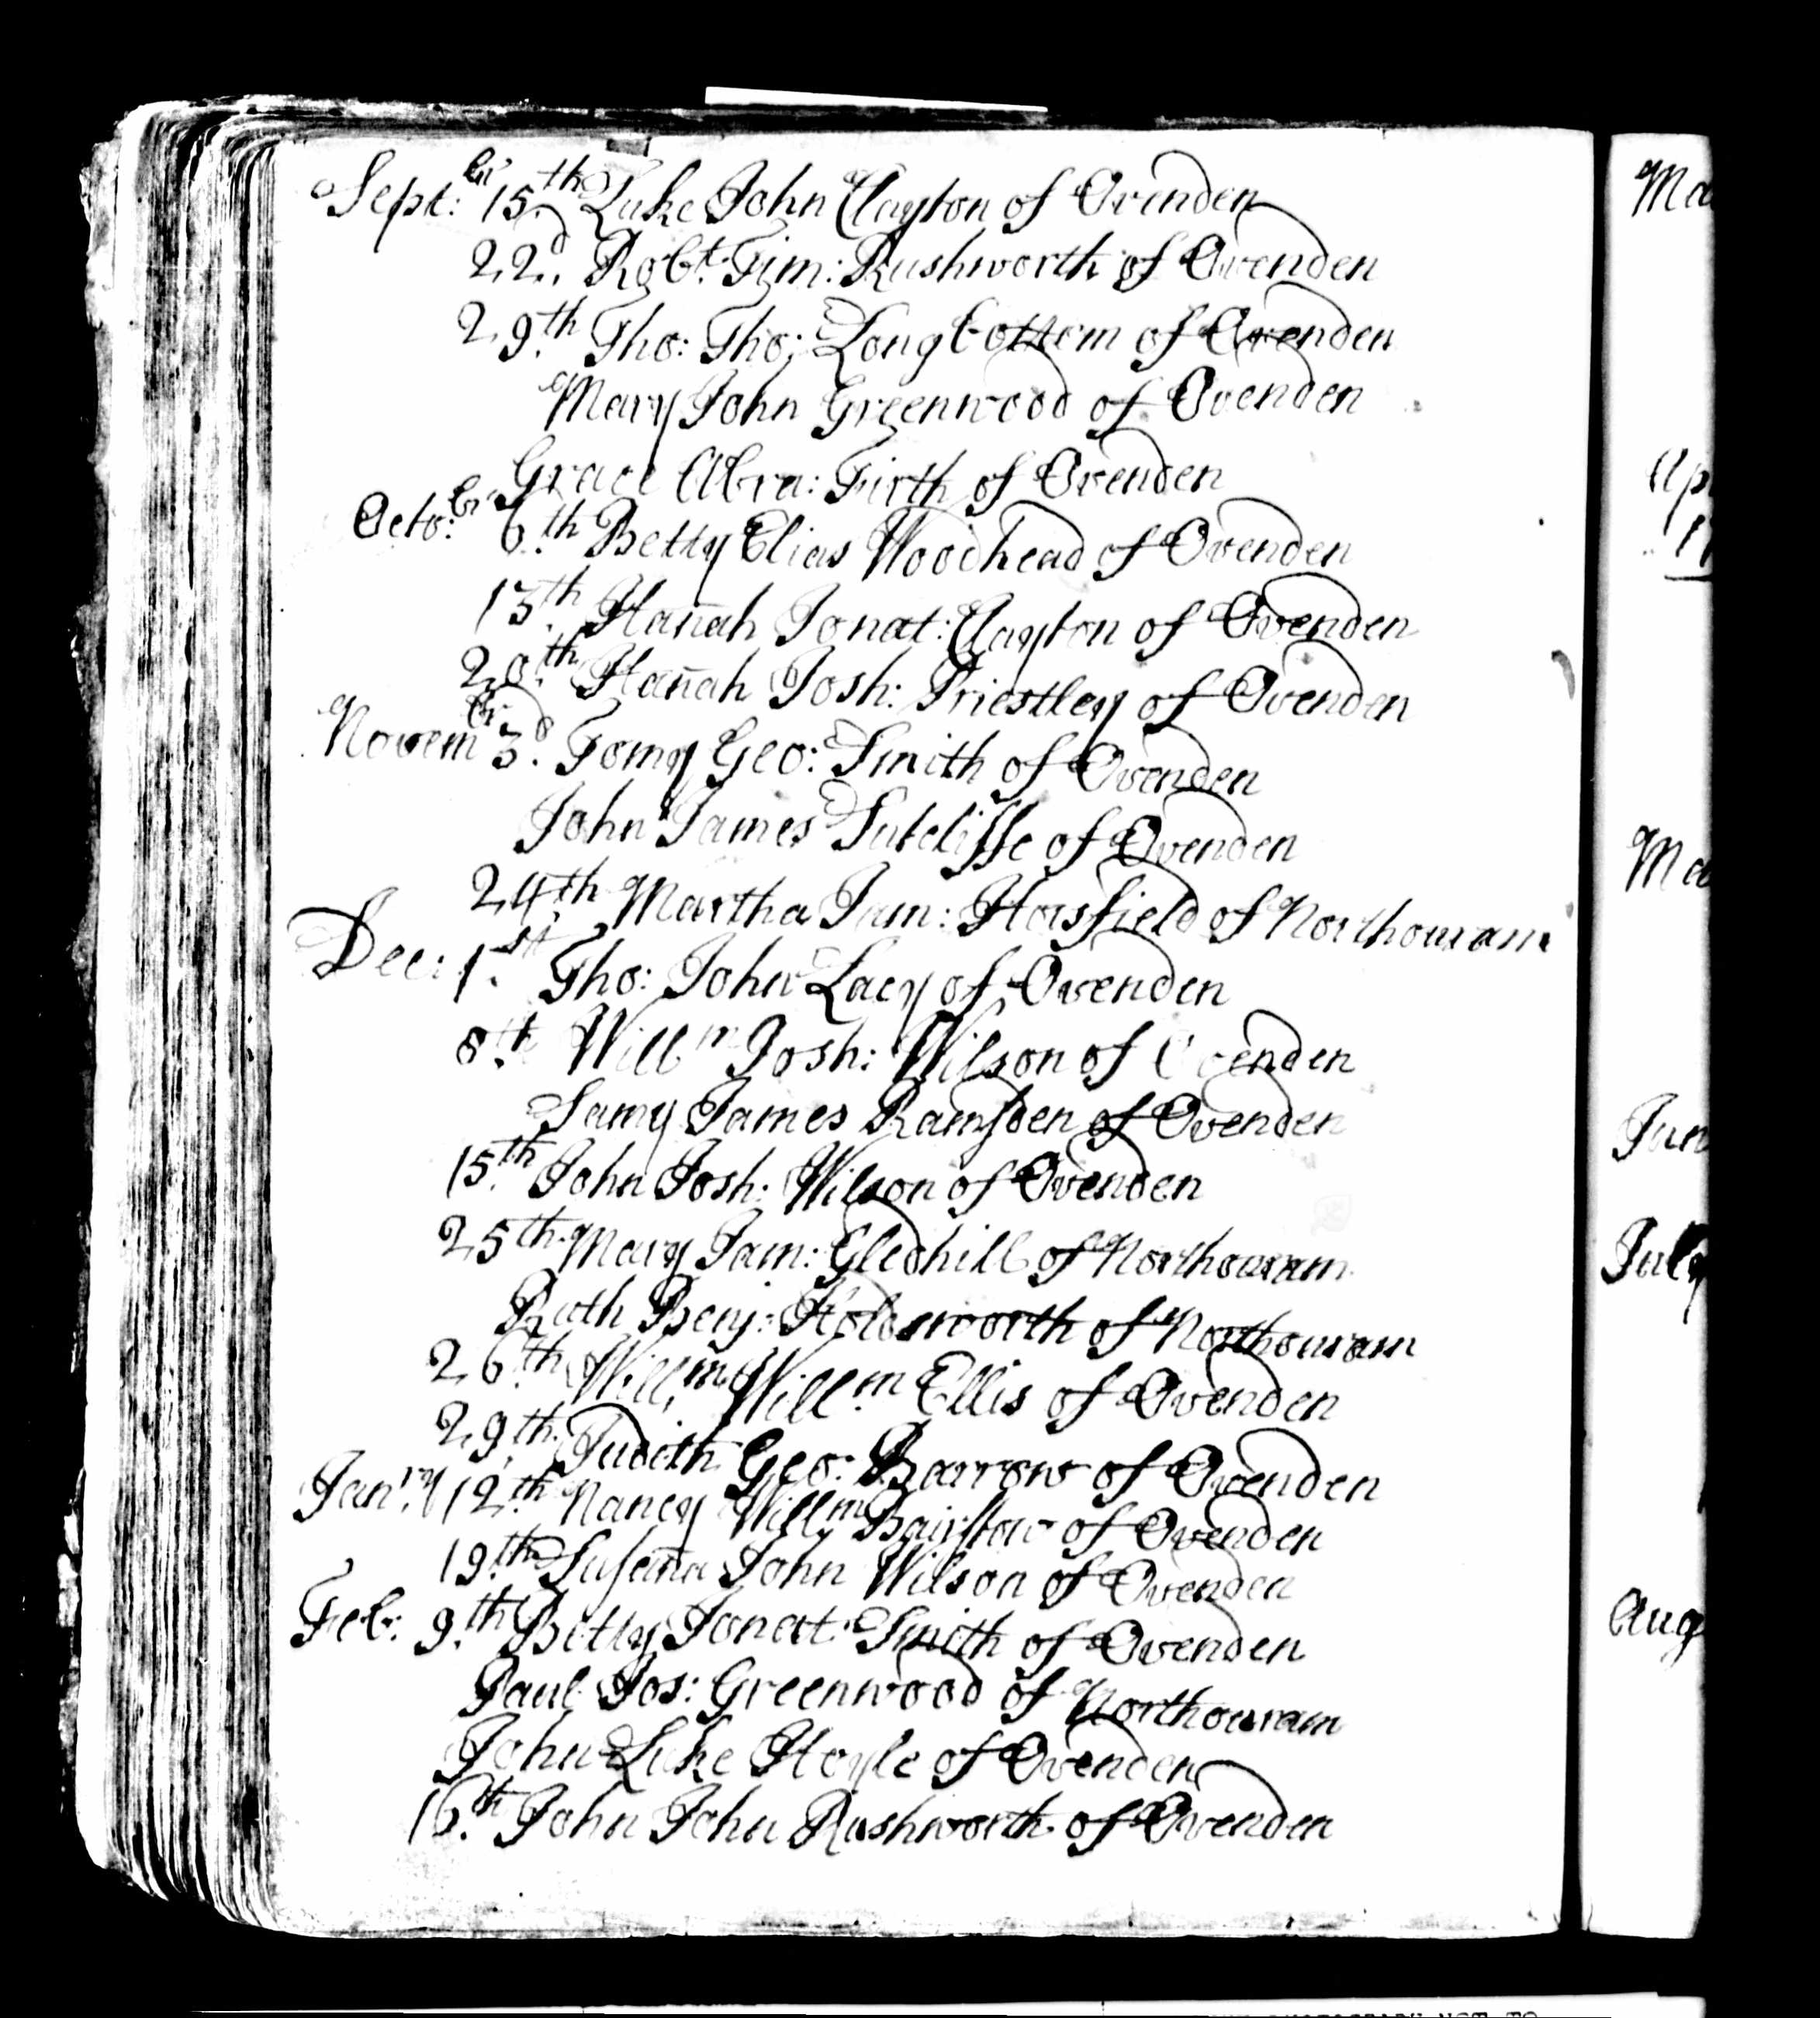 Sept:br 15th Luke John Clayton of Ovenden
22d. Robt. Tim: Rushworth of Ovenden
29th Tho: Tho: Longbottom of Ovenden
Mary John Greenwood of Ovenden
Grace Abra: Firth of Ovenden
Octo:br 6th Betty Elias Woodhead of Ovenden
13th Han̄ah Jonat: Clayton of Ovenden
20th Han̄ah Josh: Priestley of Ovenden
Novembr 3d. Tomy Geo: Smith of Ovenden
John James Sutcliffe of Ovenden
24th Martha Jam: Horsfield of Northowram
Dec: 1st Tho: John Lacy of Ovenden
8th Willm Josh: Wilson of Ovenden
Samy James Ramsden of Ovenden
15th John Josh: Wilson of Ovenden
25th Mary Jam: Gledhill of Northowram
Ruth Benj: Holdsworth of Northowram
26th Willm. Willm. Ellis of Ovenden
29th. Judith Geo: Barrow of Ovenden
Janry 12th Nancy Willm Bairstow of Ovenden
19th Susen̄a John Wilson of Ovenden
Feb: 9th Betty Jonat: Smith of Ovenden
Paul Jos: Greenwood of Northowram
John Luke Hoyle of Ovenden
16th John John Rushworth of Ovenden
Ma
Ap
Ma
Jun
July
Aug